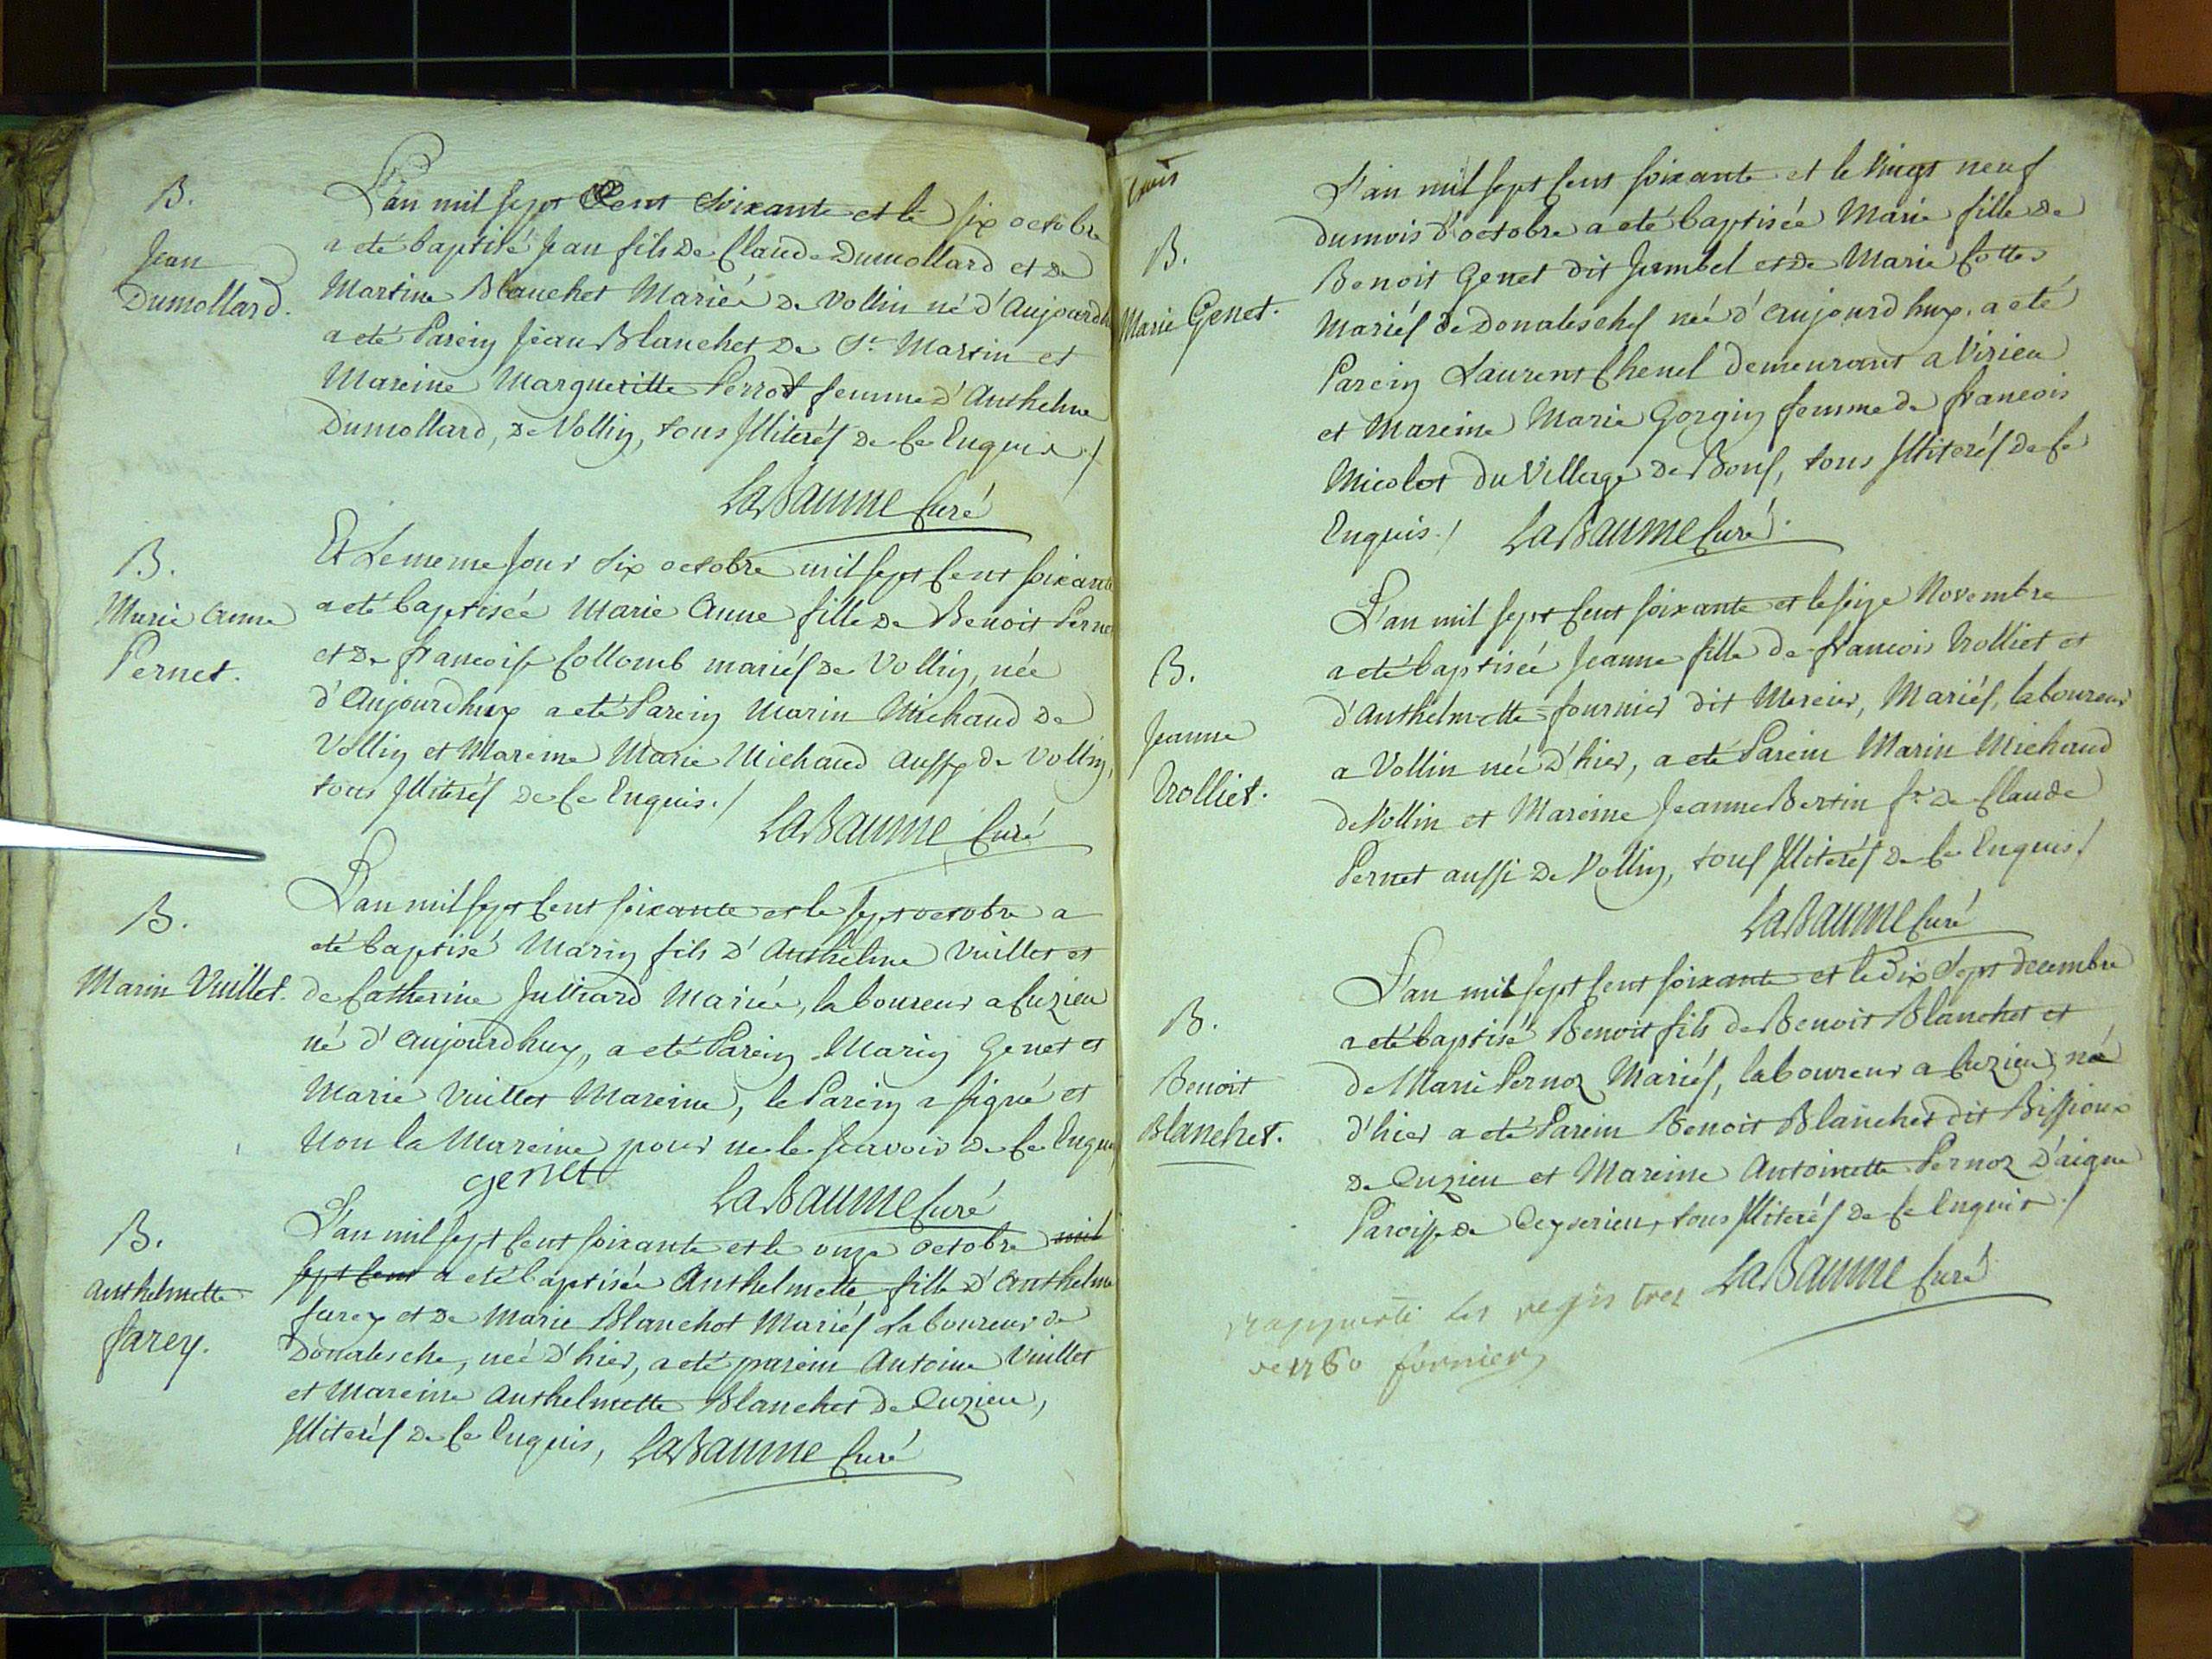 B.
Jean
Dumollard.
L'an mil sept Cent Soixante et le six octobre
a eté baptisé Jean fils De Claude Dumollard et De
Martine Blanchet Mariés De Vollin né d'Aujourdh
a eté Parein Jean Blanchet De St. Martin et
Mareine Margueritte Perrot femme d'Anthelme
Dumollard, De Vollin, tous Illiterés De Ce Enquis ./
LaBaume Curé
B.
Marie Anne
Pernet.
Et Le meme Jour Six octobre mil sept Cent soixante
a eté baptiseé Marie Anne fille De Benoit Pernet
et De francoise Collomb mariés De Vollin, neé
d'Aujourdhuy a eté Parein Marin Michaud De
Vollin et Mareine Marie Michaud Aussy de Vollin,
tous Illiterés De Ce Enquis ./
LaBaume Curé
B.
Marin Vuillet.
L'an mil sept Cent soixante et le sept octobre a
eté baptisé Marin fils d'Anthelme Vuillet et
de Catherine Julliard Mariés, laboureur a Cuzieu
né d'Aujourdhuy, a eté Parein Marin Genet et
Marie Vuillet Mareine, le Parein a signé et
Non la Mareine pour ne le scavoir De Ce Enquis
genet LaBaume Curé
B.
Anthelmette
farey.
L'an mil sept Cent soixante et le onze octobre mil
sept Cent a eté baptiseé Anthelmette fille d'Anthelme
farey et De Marie Blanchet Mariés Laboureur de
Donalesche, neé d'hier, a eté parein Antoine Vuillet
et Mareine Anthelmette Blanchet De Cuzieu,
Illiterés De Ce Enquis, LaBaume Curé
B.
Marie Genet.
L'an mil sept Cent soixante et le Vingt neuf
du mois d'octobre a eté baptiseé Marie fille De
Benoit Genet dit Jumbel et De Marie Cottet
Mariés de Donalesches neé d'aujourdhuy, a eté
Parein Laurent Chenel demeurant a Virieu
et Mareine Marie Gorgin femme De francois
Micolet du Village De Bons, tous Illiterés De Ce
Enquis ./ LaBaume Curé.
B.
Jeanne
Trolliet.
L'an mil sept Cent soixante et le seize Novembre
a eté baptiseé Jeanne fille de francois Trolliet et
d'Anthelmette fournier dit Mercier, Mariés, laboureur
a Vollin neé d'hier, a eté Parein Marin Michaud
de Vollin et Mareine Jeanne Bertin fe. De Claude
Pernet aussi De Vollin, tous Illiterés De Ce Enquis /
LaBaume Curé
B.
Benoit
Blanchet.
L'an mil sept Cent soixante et le Dix Sept decembre
a eté baptisé Benoit fils de Benoit Blanchet et
de Marie Pernoz Mariés, laboureur a Cuzieu, né
d'hier a eté Parein Benoit Blanchet dit Bissioux
De Cuzieu et Mareine Antoinette Pernoz d'aigne
Paroisse De Ceyzerieu, tous Illiterés De Ce Enquis ./
LaBaume Curé
rapporté les registres
de 1760 fornier